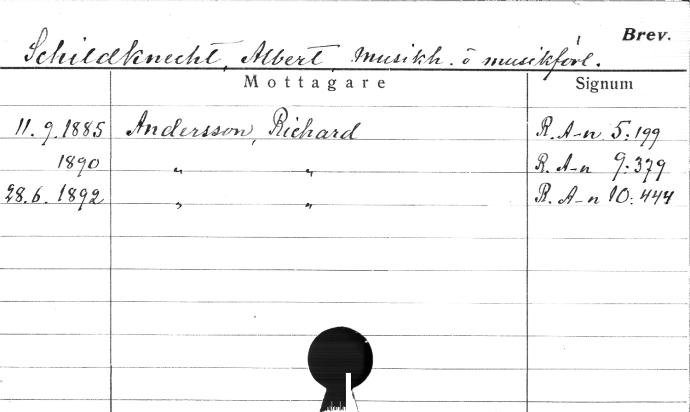 Brev.
Schildknecht, Albert, musikh. o musikförl.
Mottagare Signum
11.9.1885 Andersson, Richard R. A-n 5:199
1890 " " R. A-n 9:379
28.6.1892 " " R. A-n 10:444